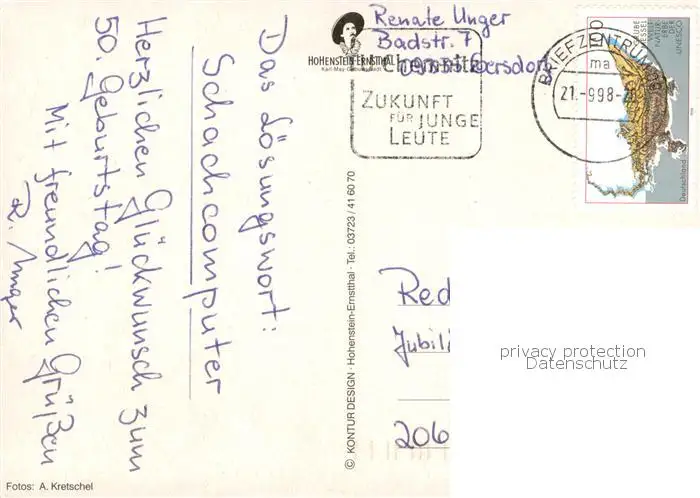 Das Lösungswort:
Schachcomputer
Herzlichen Glückwunsch zum
50. Geburtstag!
Mit freundlichen Grüßen
R. Unger
Fotos: A. Kretschel
© KONTUR DESIGN · Hohenstein-Ernstthal · Tel.: 03723 / 41 60 70
HOHENSTEIN-ERNSTTHAL
Karl-May-Geburtsstadt
Renate Unger
Badstr. 7
Chemnitz
ZUKUNFT
FÜR JUNGE
LEUTE
BRIEFZENTRUM
ma
21.-9.98-
100
GRUBE
MESSEL
WELT-
NATUR-
ERBE
DER
UNESCO
Deutschland
Red
Jubil
206
privacy protection
Datenschutz